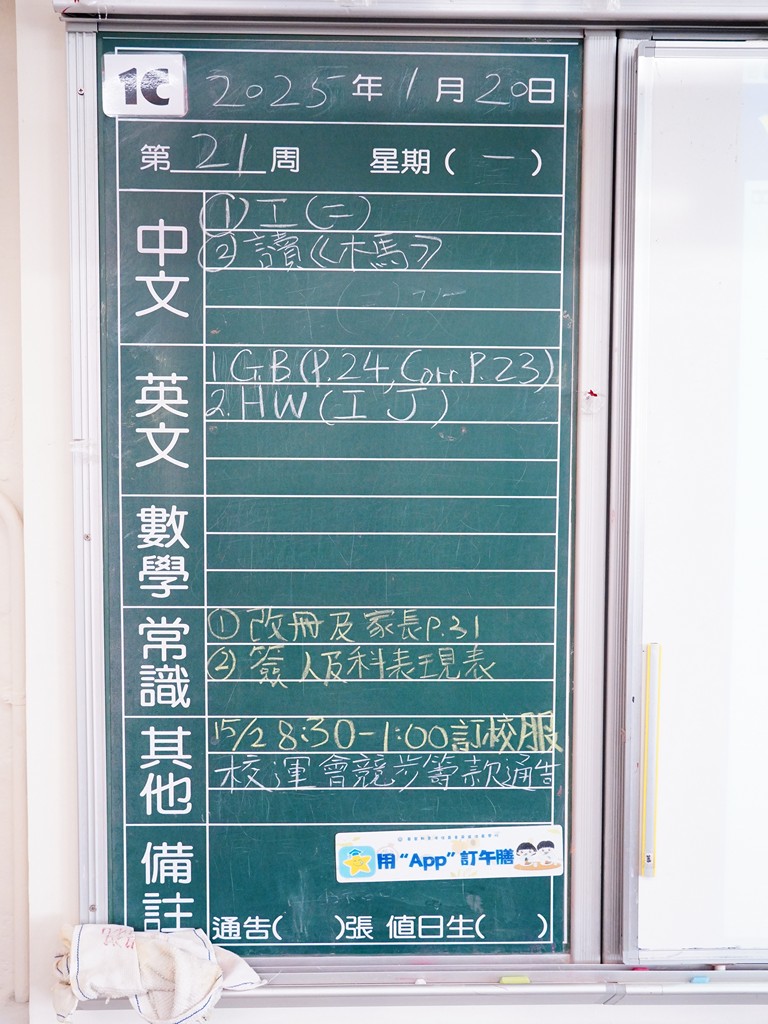 1C 2025年1月20日
第21周 星期(一)
中文
① 工(二)
② 讀《木馬》
英文
1. GB(P.24, Corr.P.23)
2. HW(I J)
數學
常識
① 改冊及家長P.31
② 簽人及科表現表
其他
15/2 8:30-1:00訂校服
校運會競步籌款通告
備註
用“App”訂午膳
通告( )張 值日生( )